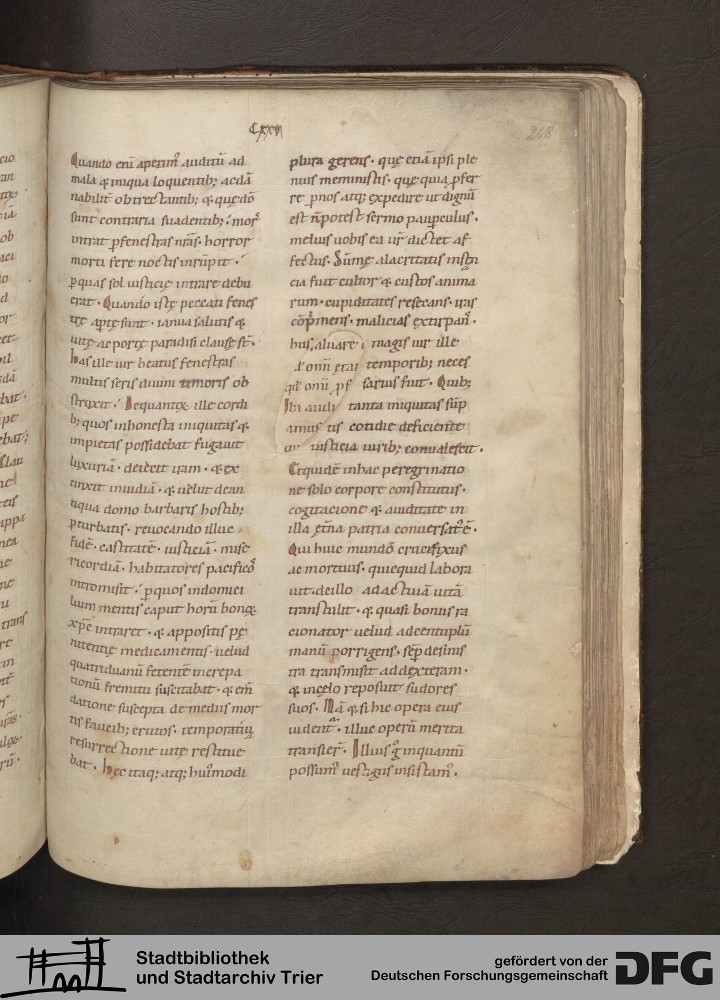 Cxxvi
268
Quando eni̅ aperim᷒ auditu̅ ad
mala ⁊ iniqua loquentib; ac da̅
nabilit̅ obtrectantib; ⁊ que̜ do̅
sunt contraria suadentib;
intrat p̲ fenestras nr̅as. horror
morti fere noctis inru̅pit.
p̲ quas sol iusticie̜ intrare debu
erat. Quando iste̜ peccati fenes
tre̜ apte̜ sunt. ianua salutis ⁊
uite̜ ac porte̜ paradisi clause̜ st̅.
has ille uir beatus fenestras
multis seris diuini timoris ob
struxit. ille cordi
b; quos inhonesta iniquitas ⁊
impietas possidebat fugauit
luxuria̅. deiecit ira̅. ⁊ ex
tinxit inuidia̅. ⁊ uelut de an
tiqua domo barbaris hostib;
p̲turbatis. reuocando illuc
fide̅. castitate̅. iusticia̅. mise
ricordia̅. habitatores pacifico᷒
intromisit. p̲ quos indomiti
mentis caput horu̅ bone̜
xp̅c intraret. ⁊ appositis pe̜
nitentie̜ medicamentis. uelud
quatriduanu̅ fetente̅ increpa
tionu̅ fremitu suscitabat. ⁊ em̅
datione suscepta de mediis mor
tis faucib; erutos.
resurrectione uite̜ restitue
bat. hec itaq; atq; hui᷒modi
plura gerens. que̜ etia̅ ipsi ple
nius meministis. que̜ quia p̲fer
re p̲ nos atq; expedire ut dignu̅
est n̅ potest sermo paup̲culus.
melius uobis ea ur̅ dictet af
fectus. Su̅me̜ alacritatis insti̅
cia fuit cultor ⁊ custos anima
rum. cupiditates resecans. iras
co̅p̲mens. malicias extirpan᷒.
magis uir ille
temporib; neces
sarius fuit. Quib;
tanta iniquitas sup̲
cotidie deficiente
iusticia uirib; conualescit.
Et quide̅ in hac peregrinatio
ne solo corpore constitutus.
cogitacione ⁊ auiditate in
illa et̅na patria conuersat᷒ e̅.
Qui huic mundo̅ crucifixus
ac mortuus. quicquid labora
uit. de illo ad actiua̅ uita̅
transtulit. ⁊ quasi bonus ra
cionator uelud ad centuplu̅
manu̅ porrigens. sep̲ de sinis
tra transmisit ad dextera̅.
⁊ in celo reposuit sudores
suos. Na̅ ⁊ si hic opera eius
uident᷒. illuc operu̅ merita
transfer̅. Illius g̊ in quantu̅
possum᷒ uestigiis insistam᷒.
Stadtbibliothek
und Stadtarchiv Trier
gefördert von der
Deutschen Forschungsgemeinschaft
DFG